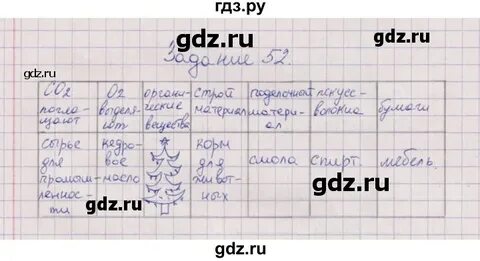 гдз.ру
gdz.ru
gdz.ru
Задание 52.
CO2 погло- щают
O2 выделя- ют
органи- ческие вещества
строй материал
поделочный матери- ал
искусс-
бумаги
gdz.ru
gdz.ru
сырье для промыш- леннос- ти
кедро- вое масло
корм для живот- ных
смола
спирт.
мебель.
gdz.ru
gdz.ru
gdz.ru